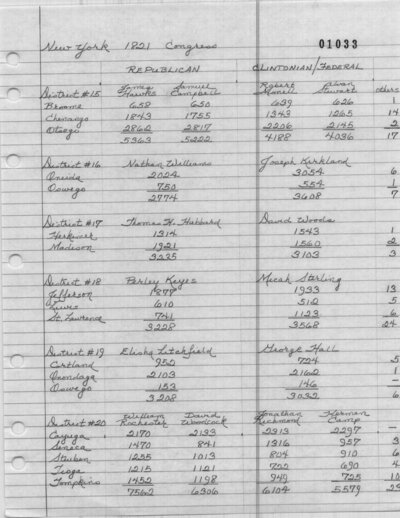 New York 1821 Congress 01033
REPUBLICAN CLINTONIAN/FEDERAL
James Samuel Robert
District #15 Hawkes Campbell Monell others
Broome 658 650 639 626 1
Chenango 1843 1755 1343 1265 14
Otsego 2862 2817 2206 2145 2
5363 5222 4188 4036 17
District #16 Nathan Williams Joseph Kirkland
Oneida 2024 3054 6
Oswego 750 554 1
2774 3608 7
District #17 Thomas H. Hubbard David Woods
Herkimer 1314 1543 1
Madison 1921 1560 2
3235 3103 3
District #18 Perley Keyes Micah Sterling
Jefferson 1877 1933 13
Lewis 610 512 5
St. Lawrence 741 1123 6
3228 3568 24
District #19 Elisha Litchfield George Hall
Cortland 952 724 5
Onondaga 2103 2162 1
Oswego 153 146 -
3208 3032 6
William David Jonathan Herman
District #20 Rochester Woodcock Richmond Camp
Cayuga 2170 2133 2313 2297 -
Seneca 1470 841 1316 957 3
Steuben 1255 1013 804 910 6
Tioga 1215 1121 690 4
Tompkins 1452 1198 949 725 10
7562 6306 6104 5579 23